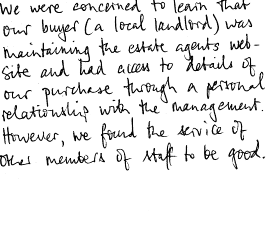 We were concerned to learn that
our buyer (a local landlord) was
maintaining the estate agents web-
site and had access to details of
our purchase through a personal
relationship with the management.
However, we found the service of
other members of staff to be good.